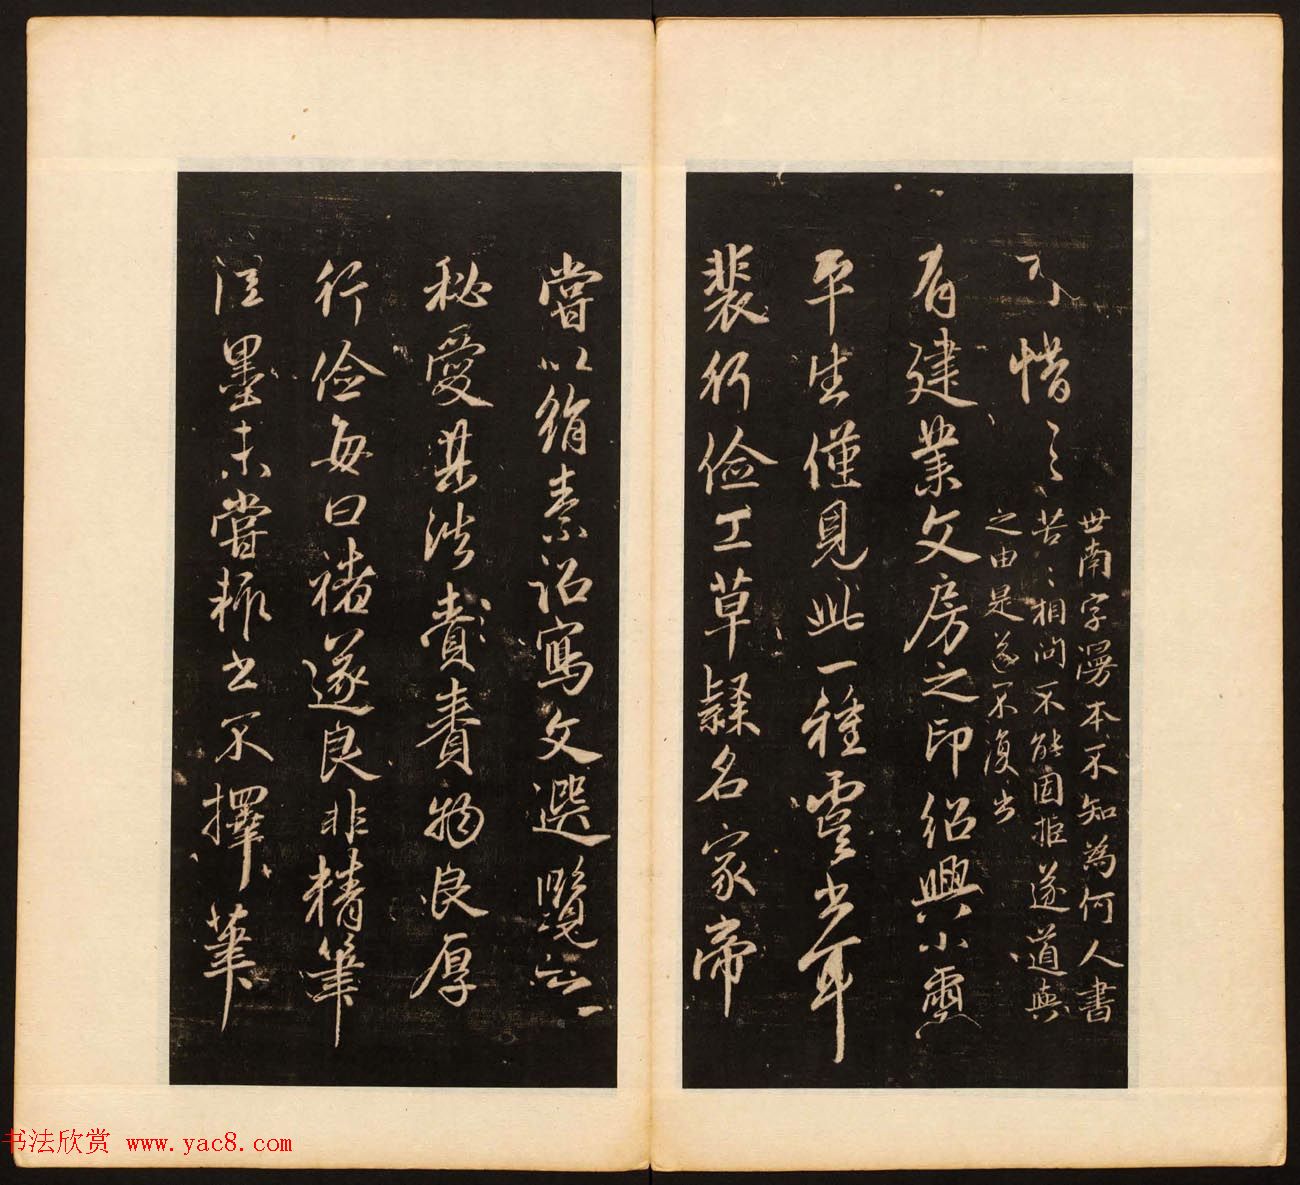 可惜之
世南字漫本不知為何人書
苦〻相問不能固拒遂道與
之由是遂不復出
有建業文房之印紹興小璽
平生僅見此一種虞書耳
裴行儉工草隸名家帝
嘗以絹素詔寫文選覽之
秘愛其法賚賚物良厚
行儉每曰褚遂良非精筆
佳墨未嘗輒書不擇筆
书法欣赏 www.yac8.com